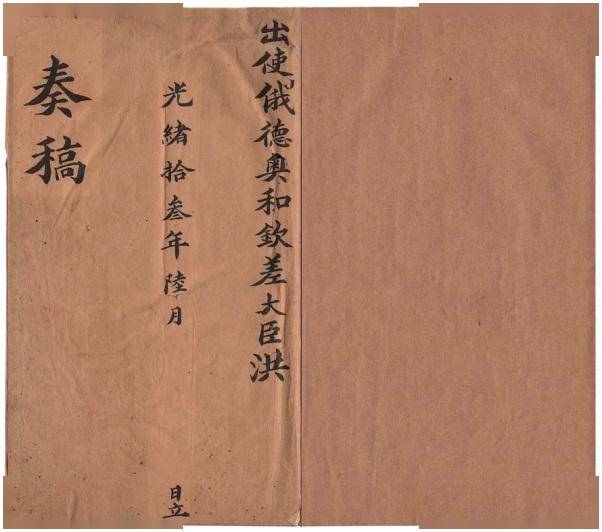 出使俄德奥和欽差大臣洪
光緒拾叁年陸月
日立
奏稿